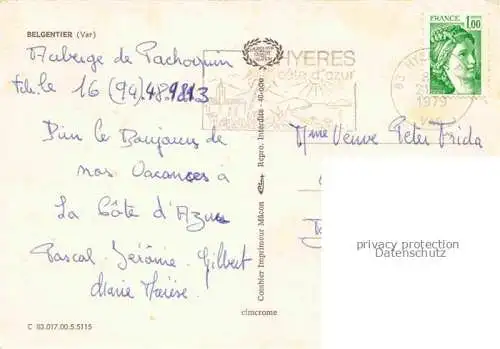 BELGENTIER (Var)
Auberge de Pachoquin
Tele. 16 (94) 48.9813
Un Bonjour de
nos Vacances à
La Côte d'Azur
Pascal - Jérôme - Gilbert
Marie Thérèse
C 83.017.00.5.5115
Combier Imprimeur Mâcon
Repro. Interdite - 40-000
cimcrome
HYERES
côte d'azur
83 HYERES
1979
VAR
FRANCE
1,00
Mme Veuve Peter Frida
privacy protection
Datenschutz